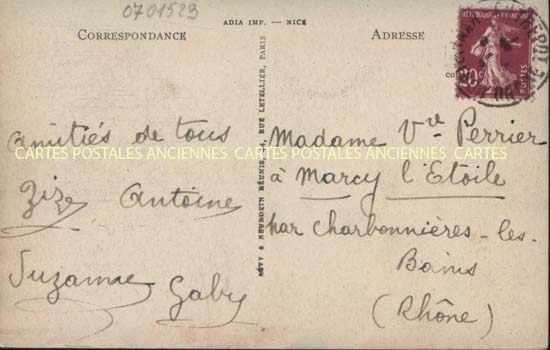 0701523
ADIA IMP. — NICE
CORRESPONDANCE
ADRESSE
REPUBLIQUE FRANÇAISE
20c
LÉVY & NEURDEIN RÉUNIS, 44, RUE LETELLIER, PARIS
amitiés de tous
Zize Antoine
Suzanne
Gaby
Madame Vve Perrier
à Marcy l'Etoile
par Charbonnières-les-
Bains
(Rhône)
CARTES POSTALES ANCIENNES CARTES POSTALES ANCIENNES CARTES